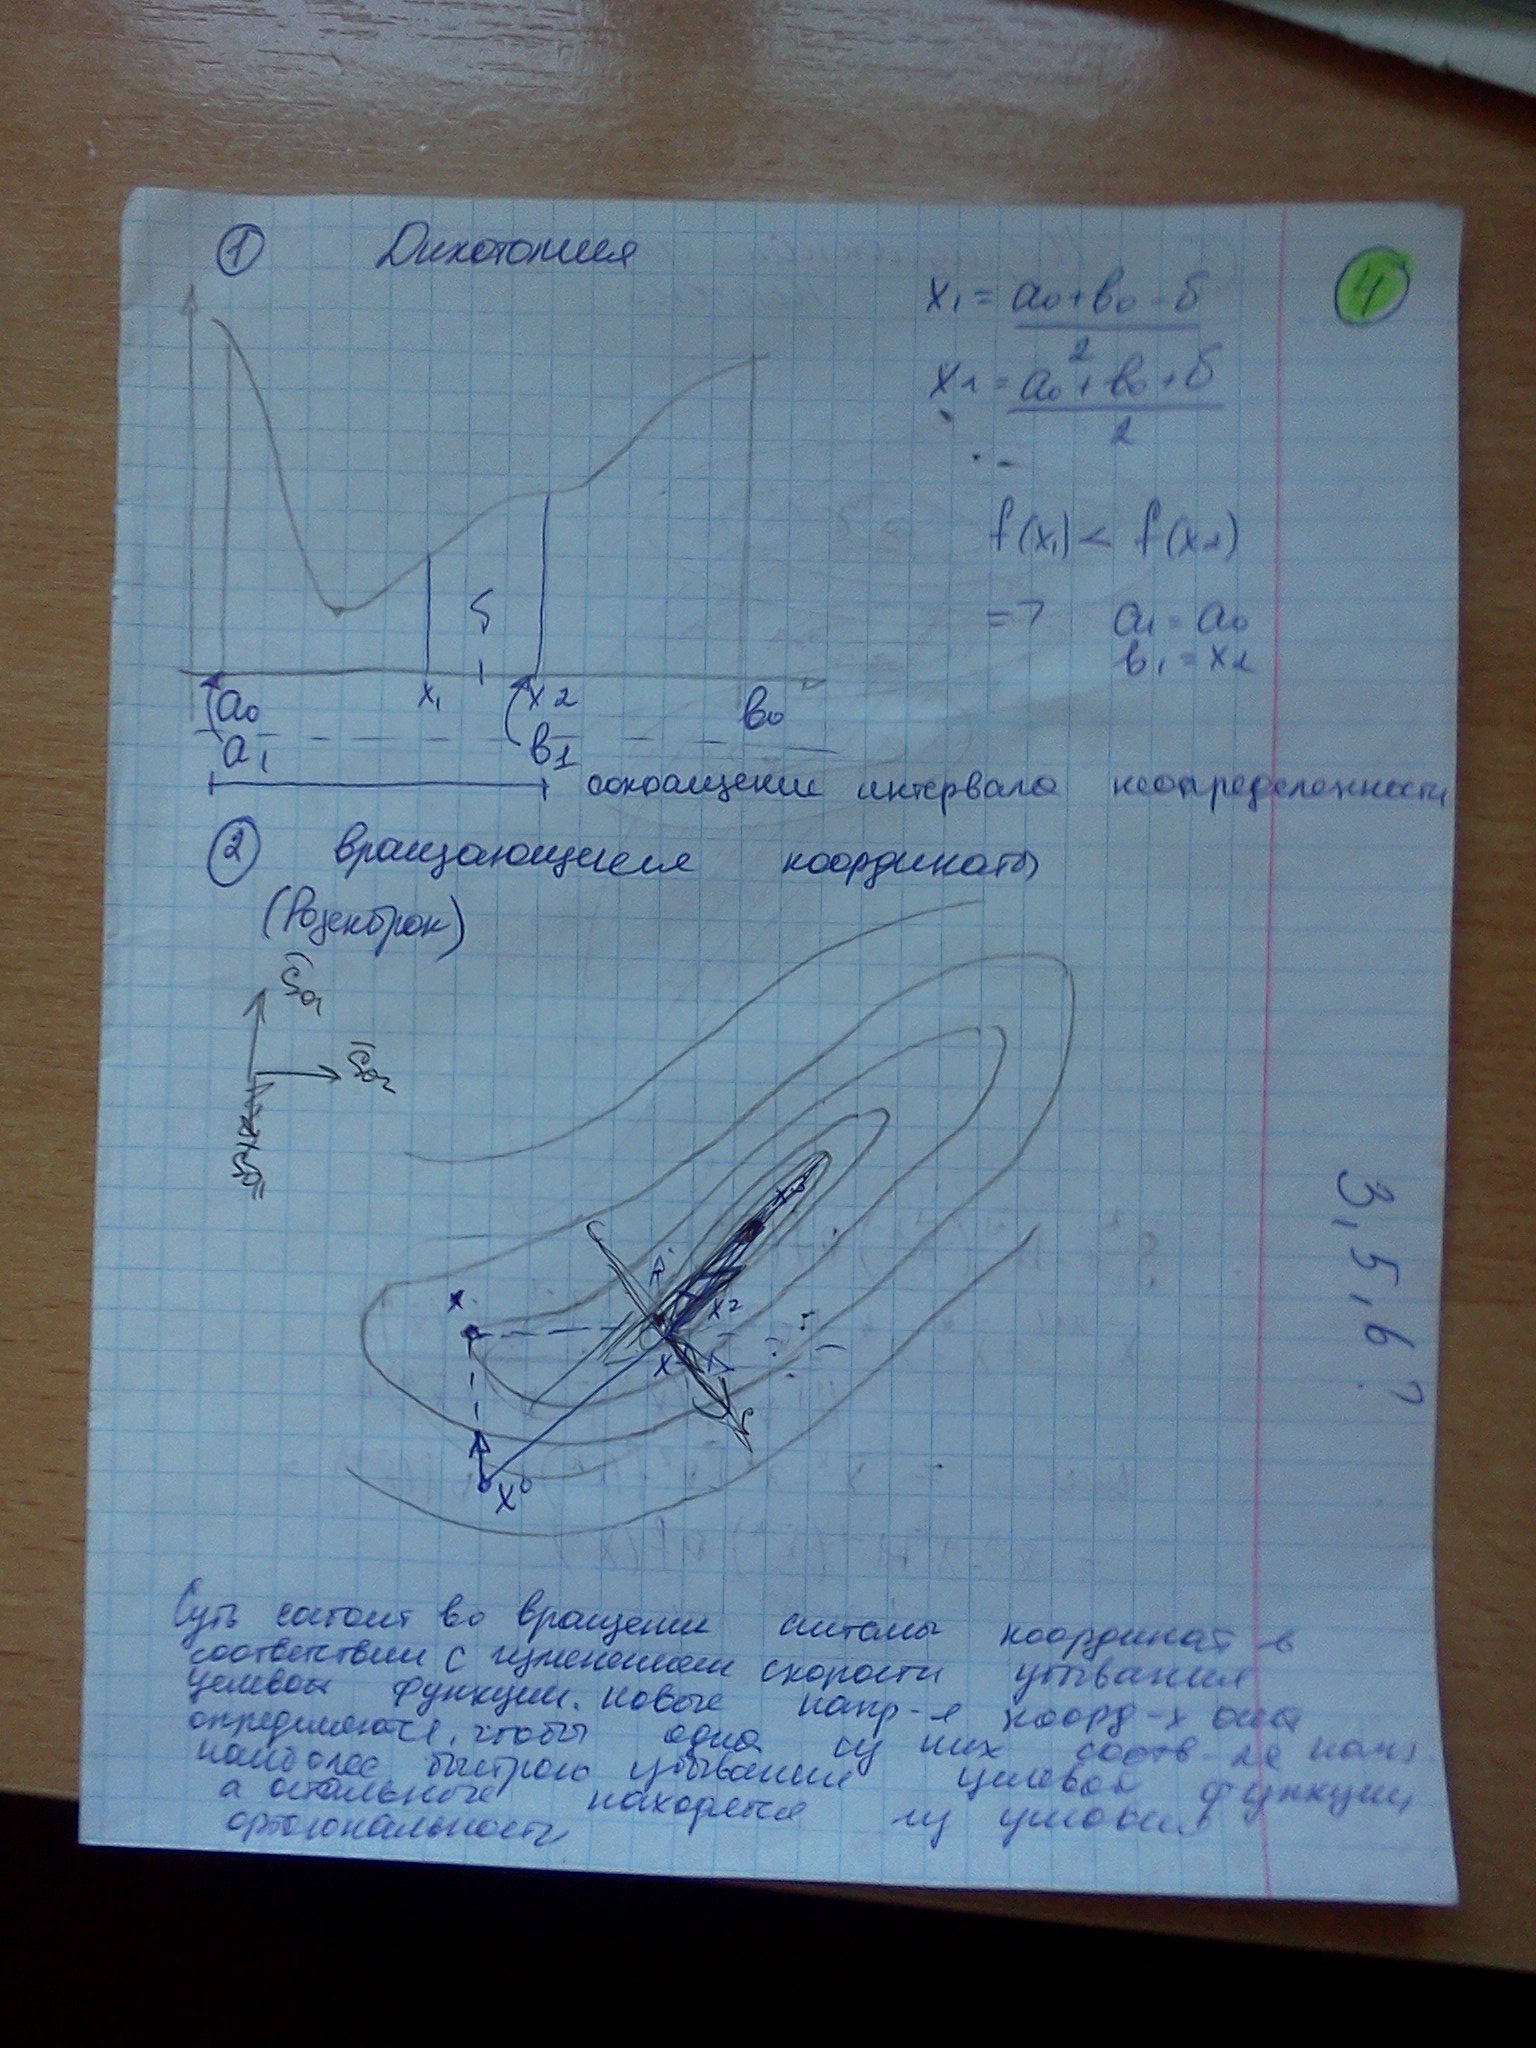 ① Дихотомия
4
x₁ = a₀ + b₀ - δ
2
x₂ = a₀ + b₀ + δ
2
f(x₁) < f(x₂)
=> a₁ = a₀
b₁ = x₂
δ
a₀ x₁ x2 b₀
a₁ b1
сокращение интервала неопределенности
② Вращающиеся координаты
(Розенброк)
S̄₀₁
S̄₀₂
x³
x²
x
x⁰
3, 5, 6?
Суть состоит во вращении системы координат в
соответствии с изменением скорости убывания
целевой функции. Новые напр-я коорд-х осей
определяются, чтобы одна из них соотв-ла напр
наиболее быстрого убывание целевой функции
а остальные находятся из условия
ортогональности